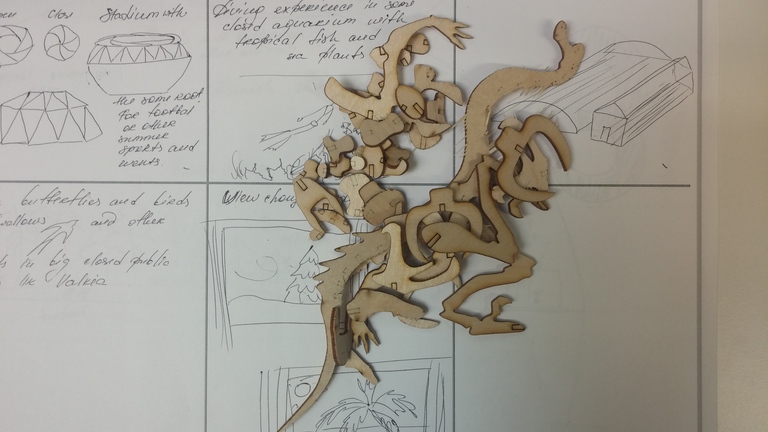 Close
Stadium with
the same roof.
For football
or other
summer
sports and
events.
Diving experience in some
closed aquarium with
tropical fish and
sea plants
butterflies and birds
swallows and other
in big closed public
View